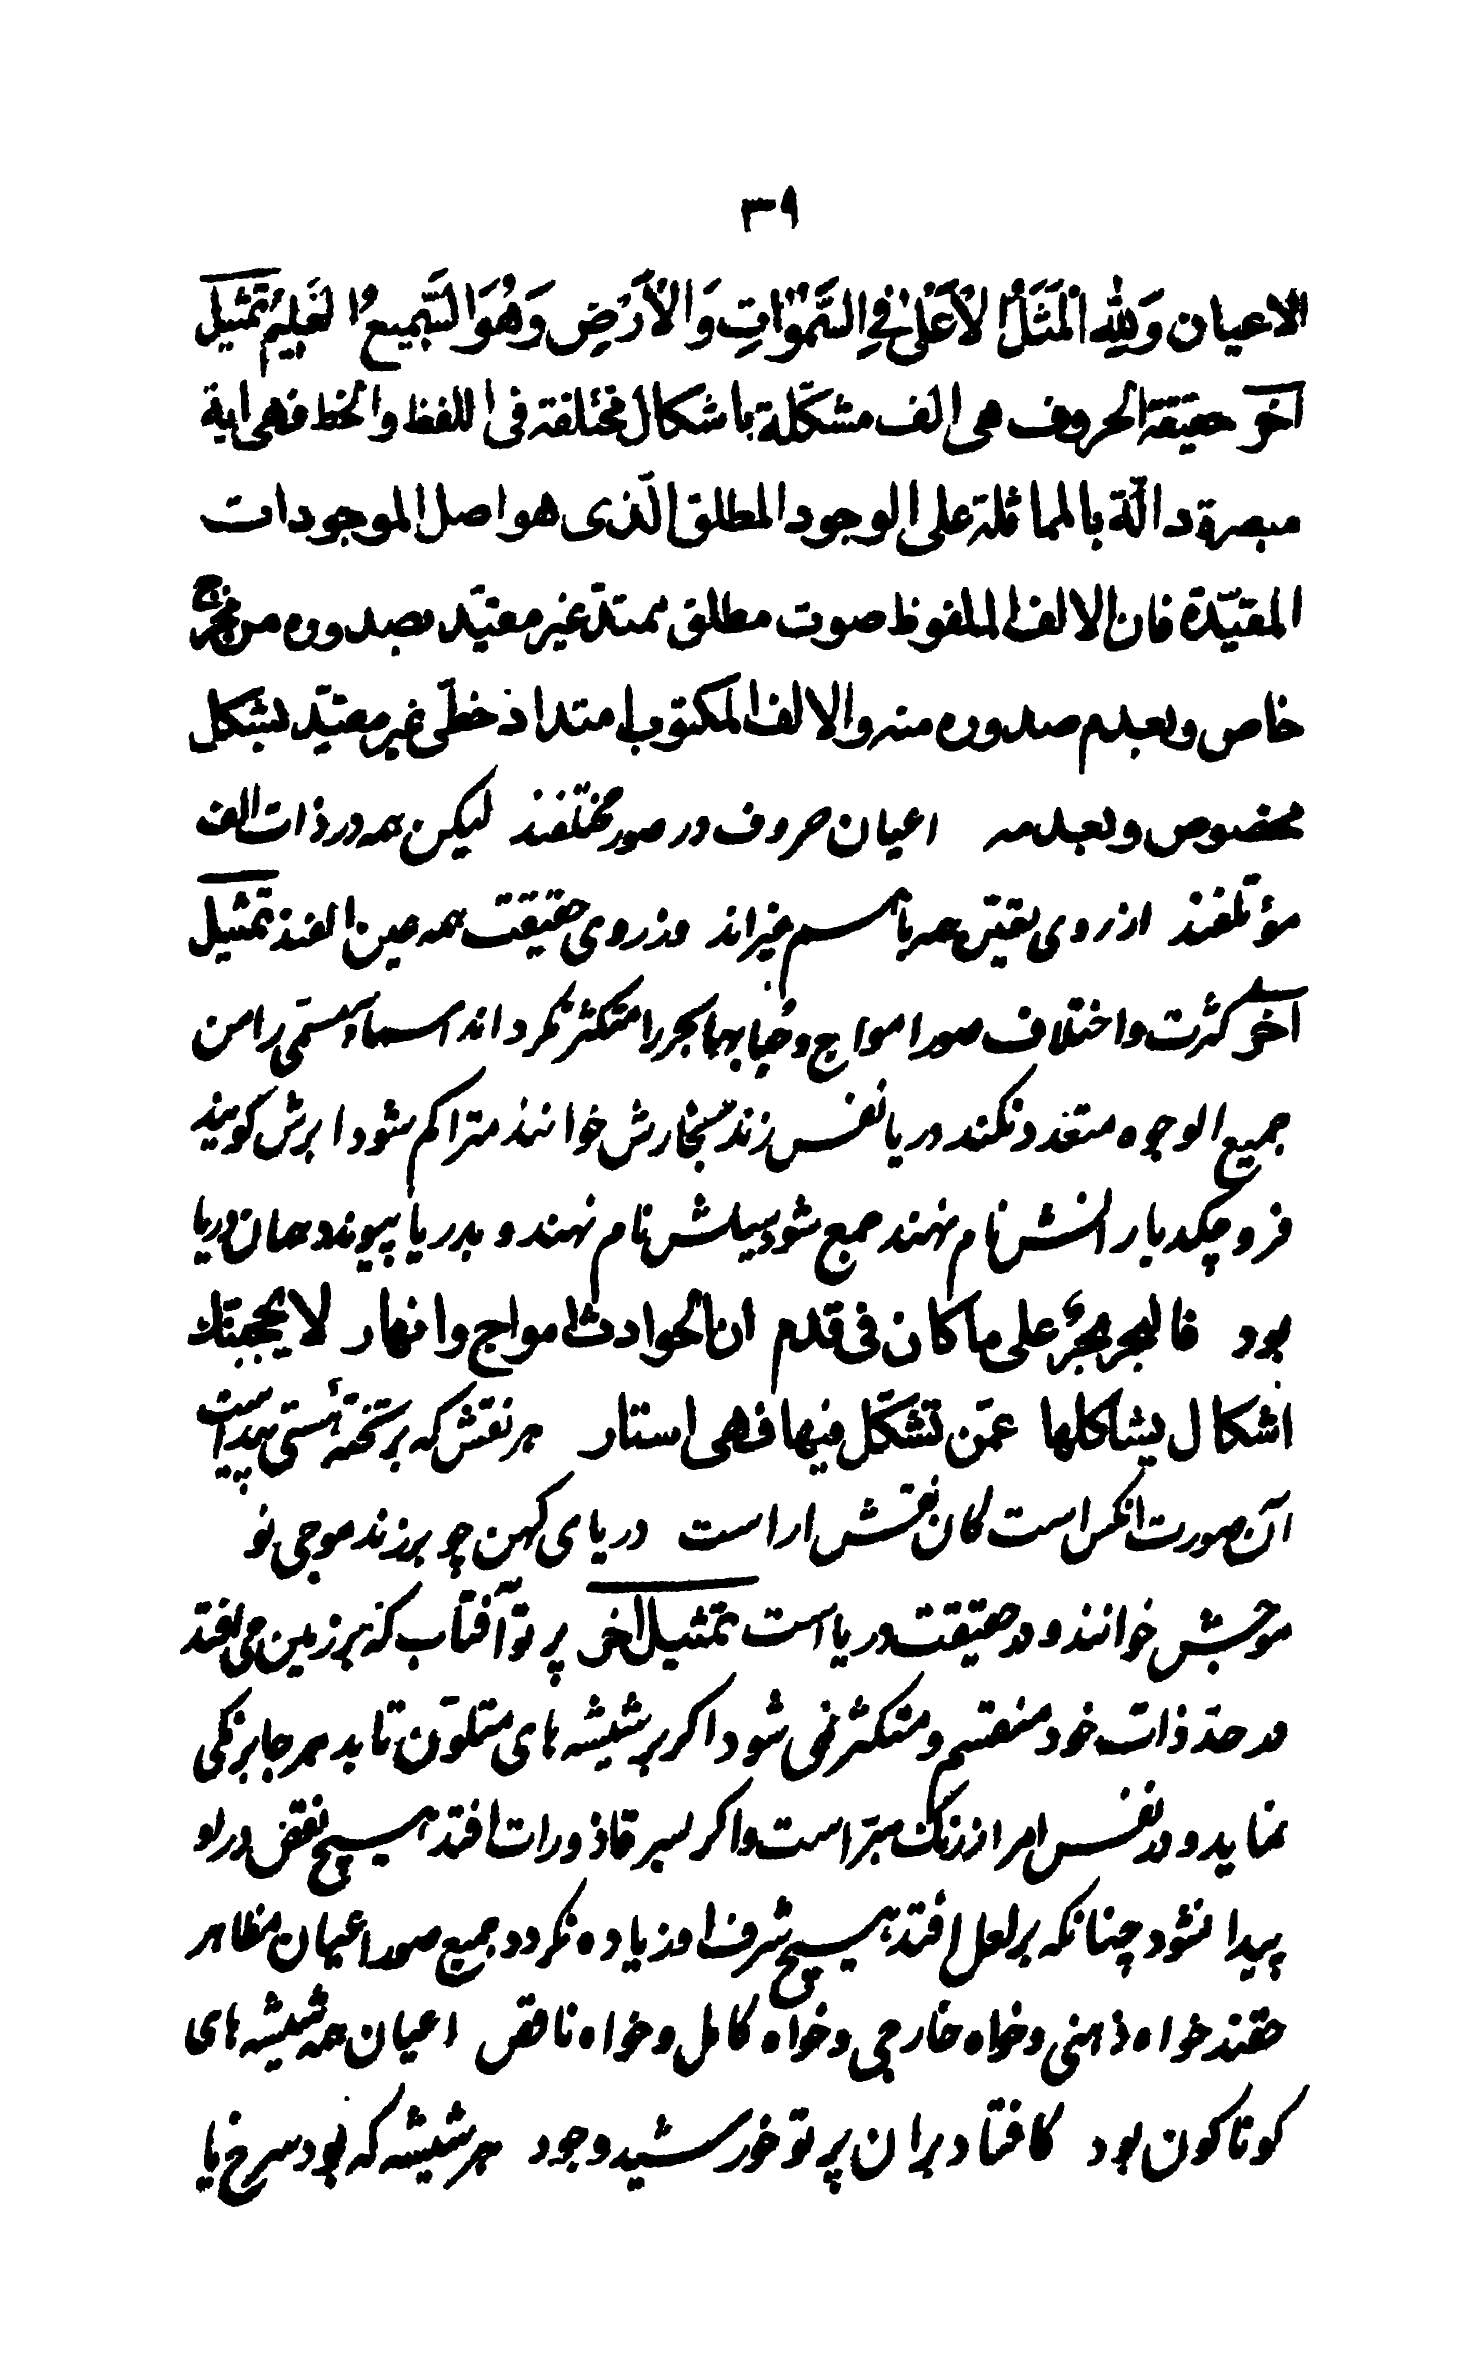 ٣٩
الاعیان وَلِلّٰهِ الْمَثَلُ الْأَعْلٰى فِي السَّمٰوٰاتِ وَالْأَرْضِ وَهُوَ السَّمِيعُ الْعَلِيمُ تمثیل
آخر حقیقة الحروف هی الف مشکّلة باشکال مختلفة فی اللفظ والخط فهی اية
مبصرة دالّة بالمماثلة على الوجود المطلق الّذی هو اصل الموجودات
المقیّدة فان الالف الملفوظ صوت مطلق ممتدّ غیر مقیّد بصدوره من مخرج
خاص وبعدم صدوره منه والالف المکتوب امتداد خطّی غیر مقیّد بشکل
مخصوص وبعدمه اعیان حروف در صور مختلفند لیکن همه در ذات الف
مؤتلفند از روی تعیّن همه با هم غیراند وز روی حقیقت همه عین الفند تمثیل
آخر کثرت واختلاف صور امواج وحبابها بحر را متکثر نکرداند اسماء مسمّی را من
جمیع الوجوه متعدد نکند دریا نفس زند بخارش خوانند متراکم شود ابرش کویند
فرو چکد بارانش نام نهند جمع شود سیلش نام نهند و بدریا پیوندد همان دریا
بود فالبحر بحرٌ على ما کان فی قدم ان الحوادث امواج وانهار لا یحجبنّك
اشکال یشاکلها عمّن تشکّل فیها فهی استار هر نقش که بر تختهٔ هستی پیداست
آن صورت انکس است کان نقش اراست دریای کهن چو برزند موجی نو
موجش خوانند و در حقیقت دریاست تمثیل اخر پرتو آفتاب که بر زمین می افتد
در حدّ ذات خود منقسم و متکثر نمی شود اکر بر شیشه های متلوّن تابد هر جا برنکی
نماید و در نفس امر از رنك مبرّاست واکر بر سر قاذورات افتد هیچ نقص در او
پیدا نشود چنانکه بر لعل افتد هیچ شرف او زیاده نکردد جمیع صور اعیان مظاهر
حقند خواه ذهنی وخواه خارجی وخواه کامل وخواه ناقص اعیان همه شیشه های
کوناکون بود کافتاد بران پرتو خورشید وجود هر شیشه که بود سرخ یا